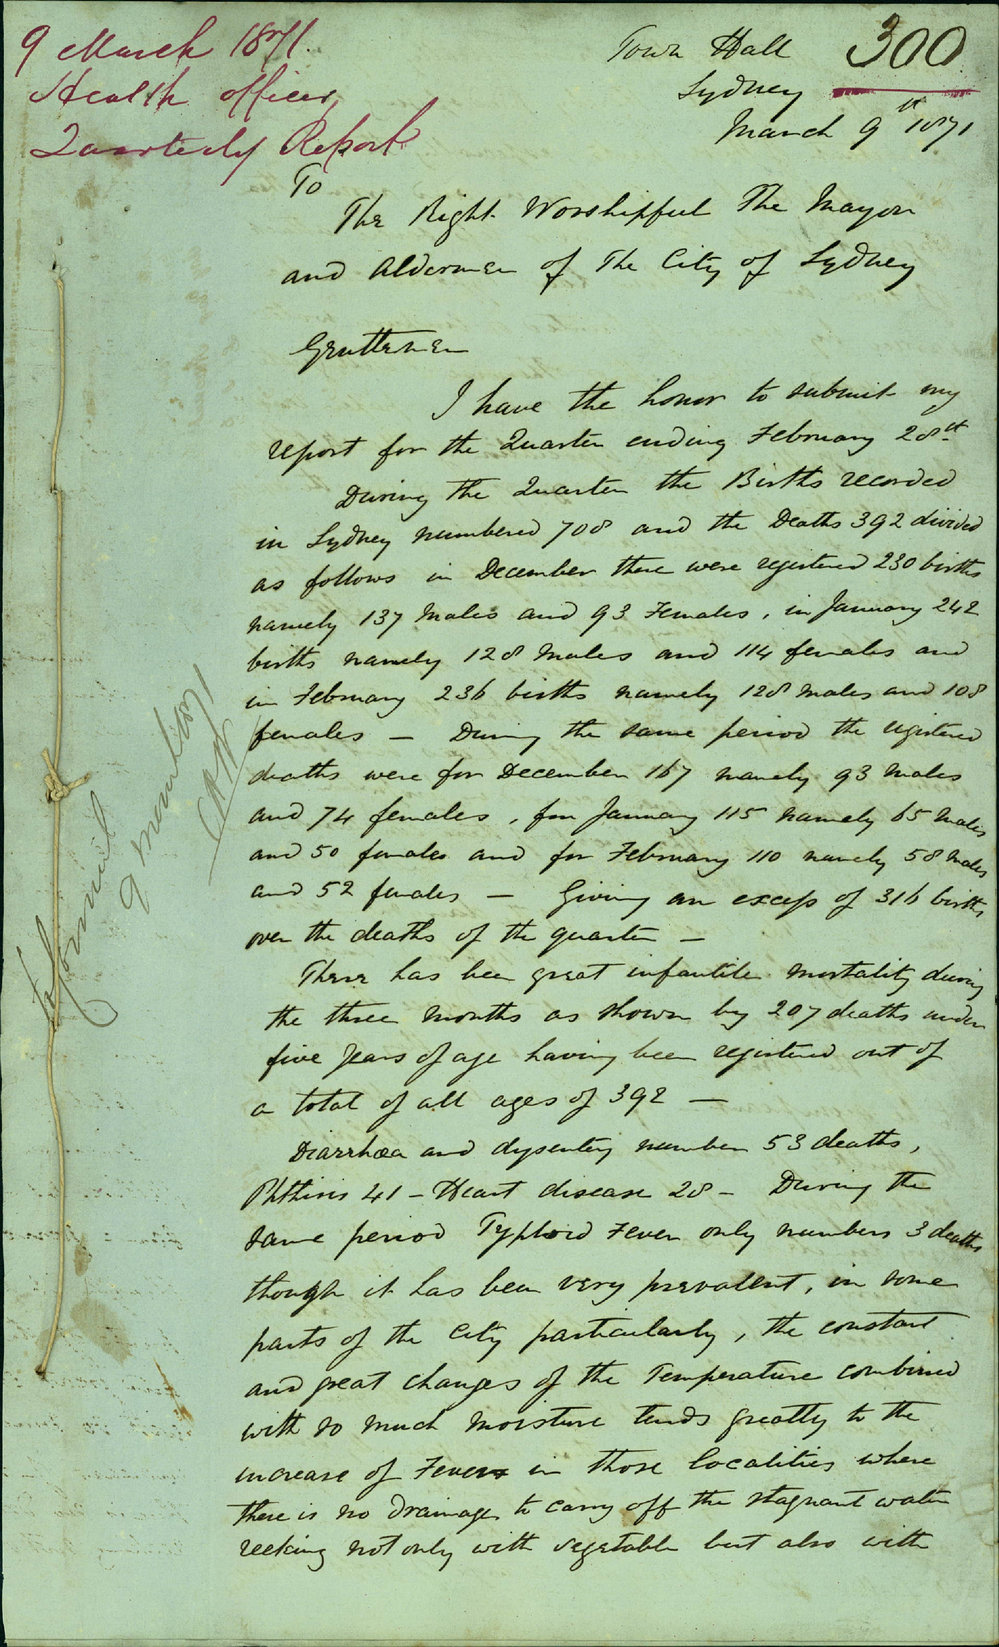 9 March 1871.
Health officer
Quarterly Report.
300
Town Hall
Sydney
March 9th 1871
To
The Right Worshipful The Mayor
and Aldermen of The City of Sydney
Gentlemen
I have the honor to submit my
report for the Quarter ending February 28th.
During the Quarter the Births recorded
in Sydney numbered 708 and the Deaths 392 divided
as follows in December there were registered 230 births
namely 137 Males and 93 Females, in January 242
births namely 128 Males and 114 females and
in February 236 births namely 128 Males and 108
females — During the same period the registered
deaths were for December 167 namely 93 Males
and 74 females, for January 115 namely 65 Males
and 50 females and for February 110 namely 58 Males
and 52 females — Giving an excess of 316 births
over the deaths of the quarter —
There has been great infantile mortality during
the three months as shown by 207 deaths under
five years of age having been registered out of
a total of all ages of 392 —
Diarrhœa and dysentery number 53 deaths,
Phthisis 41 - Heart disease 28 - During the
same period Typhoid Fever only numbers 3 deaths
though it has been very prevalent, in some
parts of the City particularly, the constant
and great changes of the Temperature combined
with so much moisture tends greatly to the
increase of Fever in those localities where
there is no drainage to carry off the stagnant water
reeking not only with vegetable but also with
9